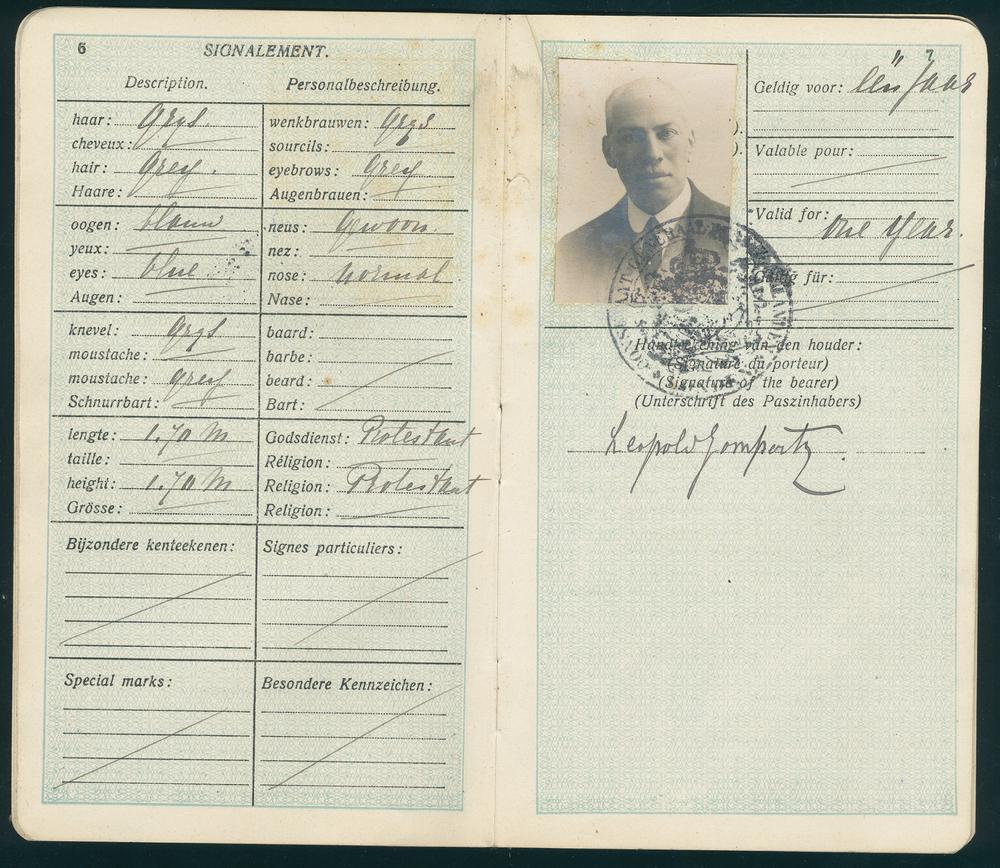 6
SIGNALEMENT.
Description.
Personalbeschreibung.
haar: Grys.
cheveux:
hair: Grey.
Haare:
wenkbrauwen: Grys
sourcils:
eyebrows: Grey
Augenbrauen:
oogen: blauw
yeux:
eyes: blue
Augen:
neus: Gewoon.
nez:
nose: normal
Nase:
knevel: Grys
moustache:
moustache: Grey
Schnurrbart:
baard:
barbe:
beard:
Bart:
lengte: 1.70 M
taille:
height: 1.70 M
Grösse:
Godsdienst: Protestant
Réligion:
Religion: Protestant
Religion:
Bijzondere kenteekenen:
Signes particuliers:
Special marks:
Besondere Kennzeichen:
7
Geldig voor: één Jaar
Valable pour:
Valid for: One Year.
Gültig für:
Handteekening van den houder:
(Signature du porteur)
(Signature of the bearer)
(Unterschrift des Paszinhabers)
Leopold Gompertz.